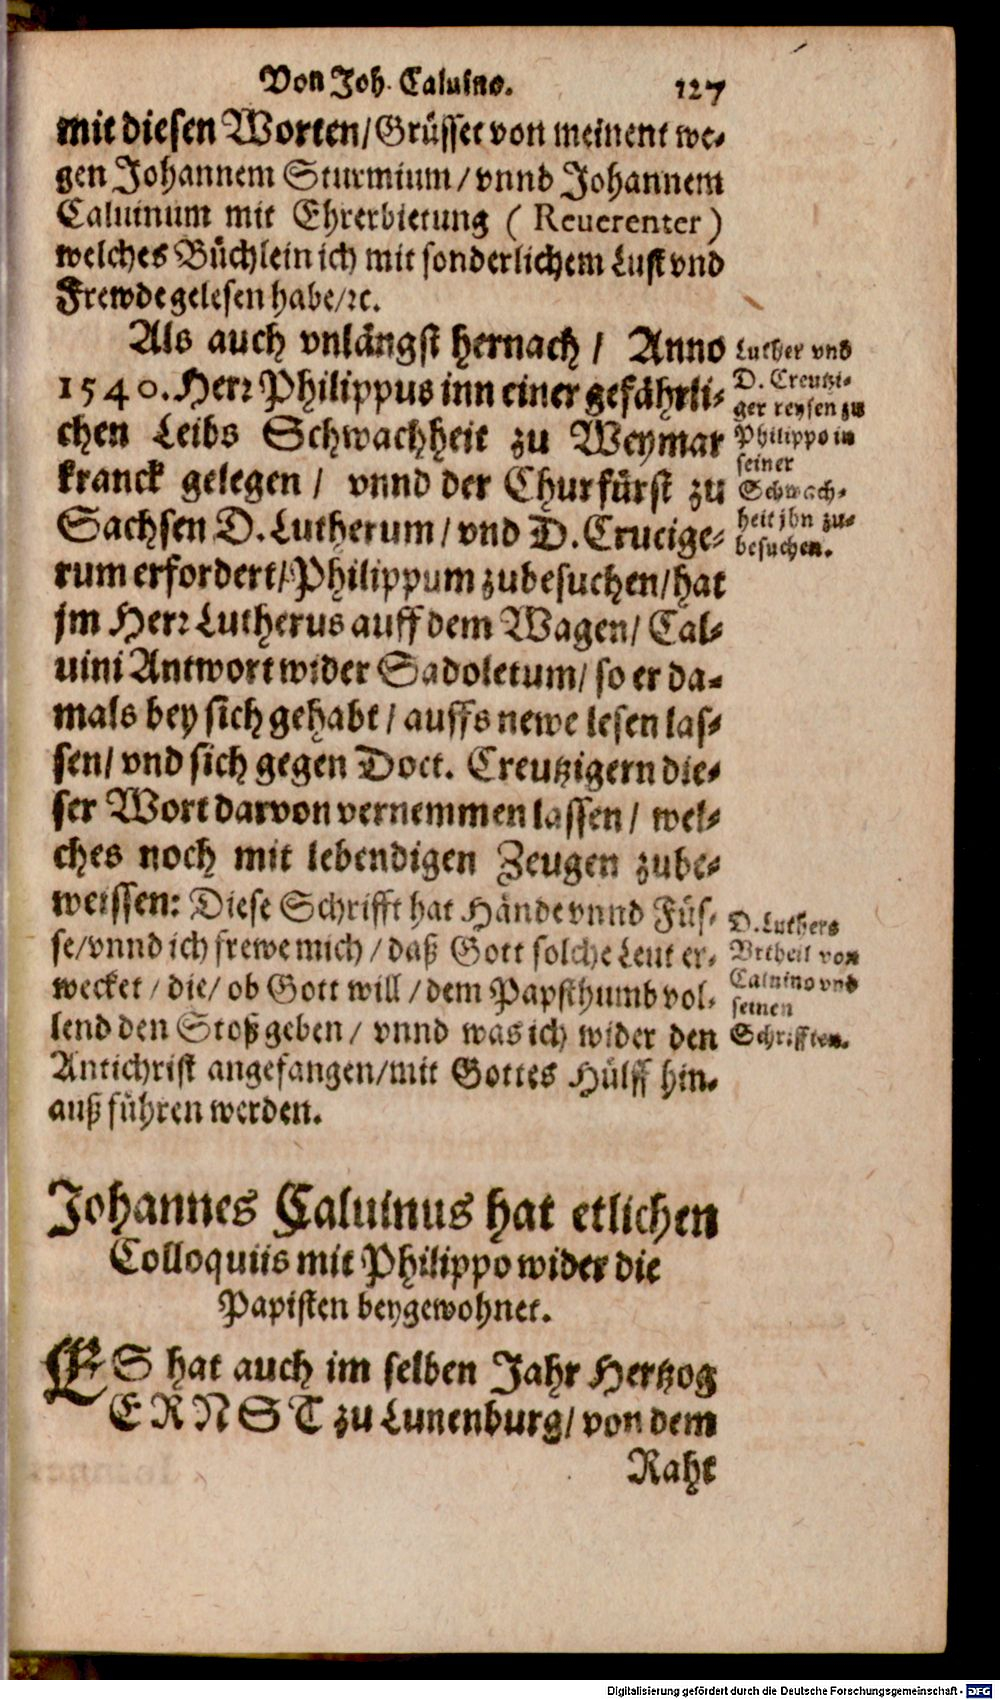 Von Joh. Caluino. 127
mit diesen Worten/Grüsset von meinent we-
gen Johannem Sturmium/vnnd Johannem
Caluinum mit Ehrerbietung (Reuerenter)
welches Büchlein ich mit sonderlichem Lust vnd
Frewde gelesen habe/ꝛc.
Als auch vnlängst hernach/ Anno
1540. Herr Philippus inn einer gefährli-
chen Leibs Schwachheit zu Weymar
kranck gelegen/ vnnd der Churfürst zu
Sachsen D. Lutherum/vnd D. Crucige-
rum erfordert/Philippum zubesuchen/hat
jm Herr Lutherus auff dem Wagen/ Cal-
uini Antwort wider Sadoletum/so er da-
mals bey sich gehabt/auffs newe lesen las-
sen/vnd sich gegen Doct. Creutzigern die-
ser Wort darvon vernemmen lassen/ wel-
ches noch mit lebendigen Zeugen zube-
weissen: Diese Schrifft hat Hände vnnd Füs-
se/vnnd ich frewe mich/daß Gott solche Leut er-
wecket/die/ob Gott will/dem Papsthumb vol-
lend den Stoß geben/ vnnd was ich wider den
Antichrist angefangen/mit Gottes Hülff hin-
auß führen werden.
Luther vnd
D. Creutzi-
ger reysen zu
Philippo in
seiner
Schwach-
heit jhn zu-
besuchen.
D. Luthers
Vrtheil von
Caluino vnd
seinen
Schrifften.
Johannes Caluinus hat etlichen
Colloquiis mit Philippo wider die
Papisten beygewohnet.
ES hat auch im selben Jahr Hertzog
ERNST zu Lunenburg/von dem
Raht
Digitalisierung gefördert durch die Deutsche Forschungsgemeinschaft - DFG